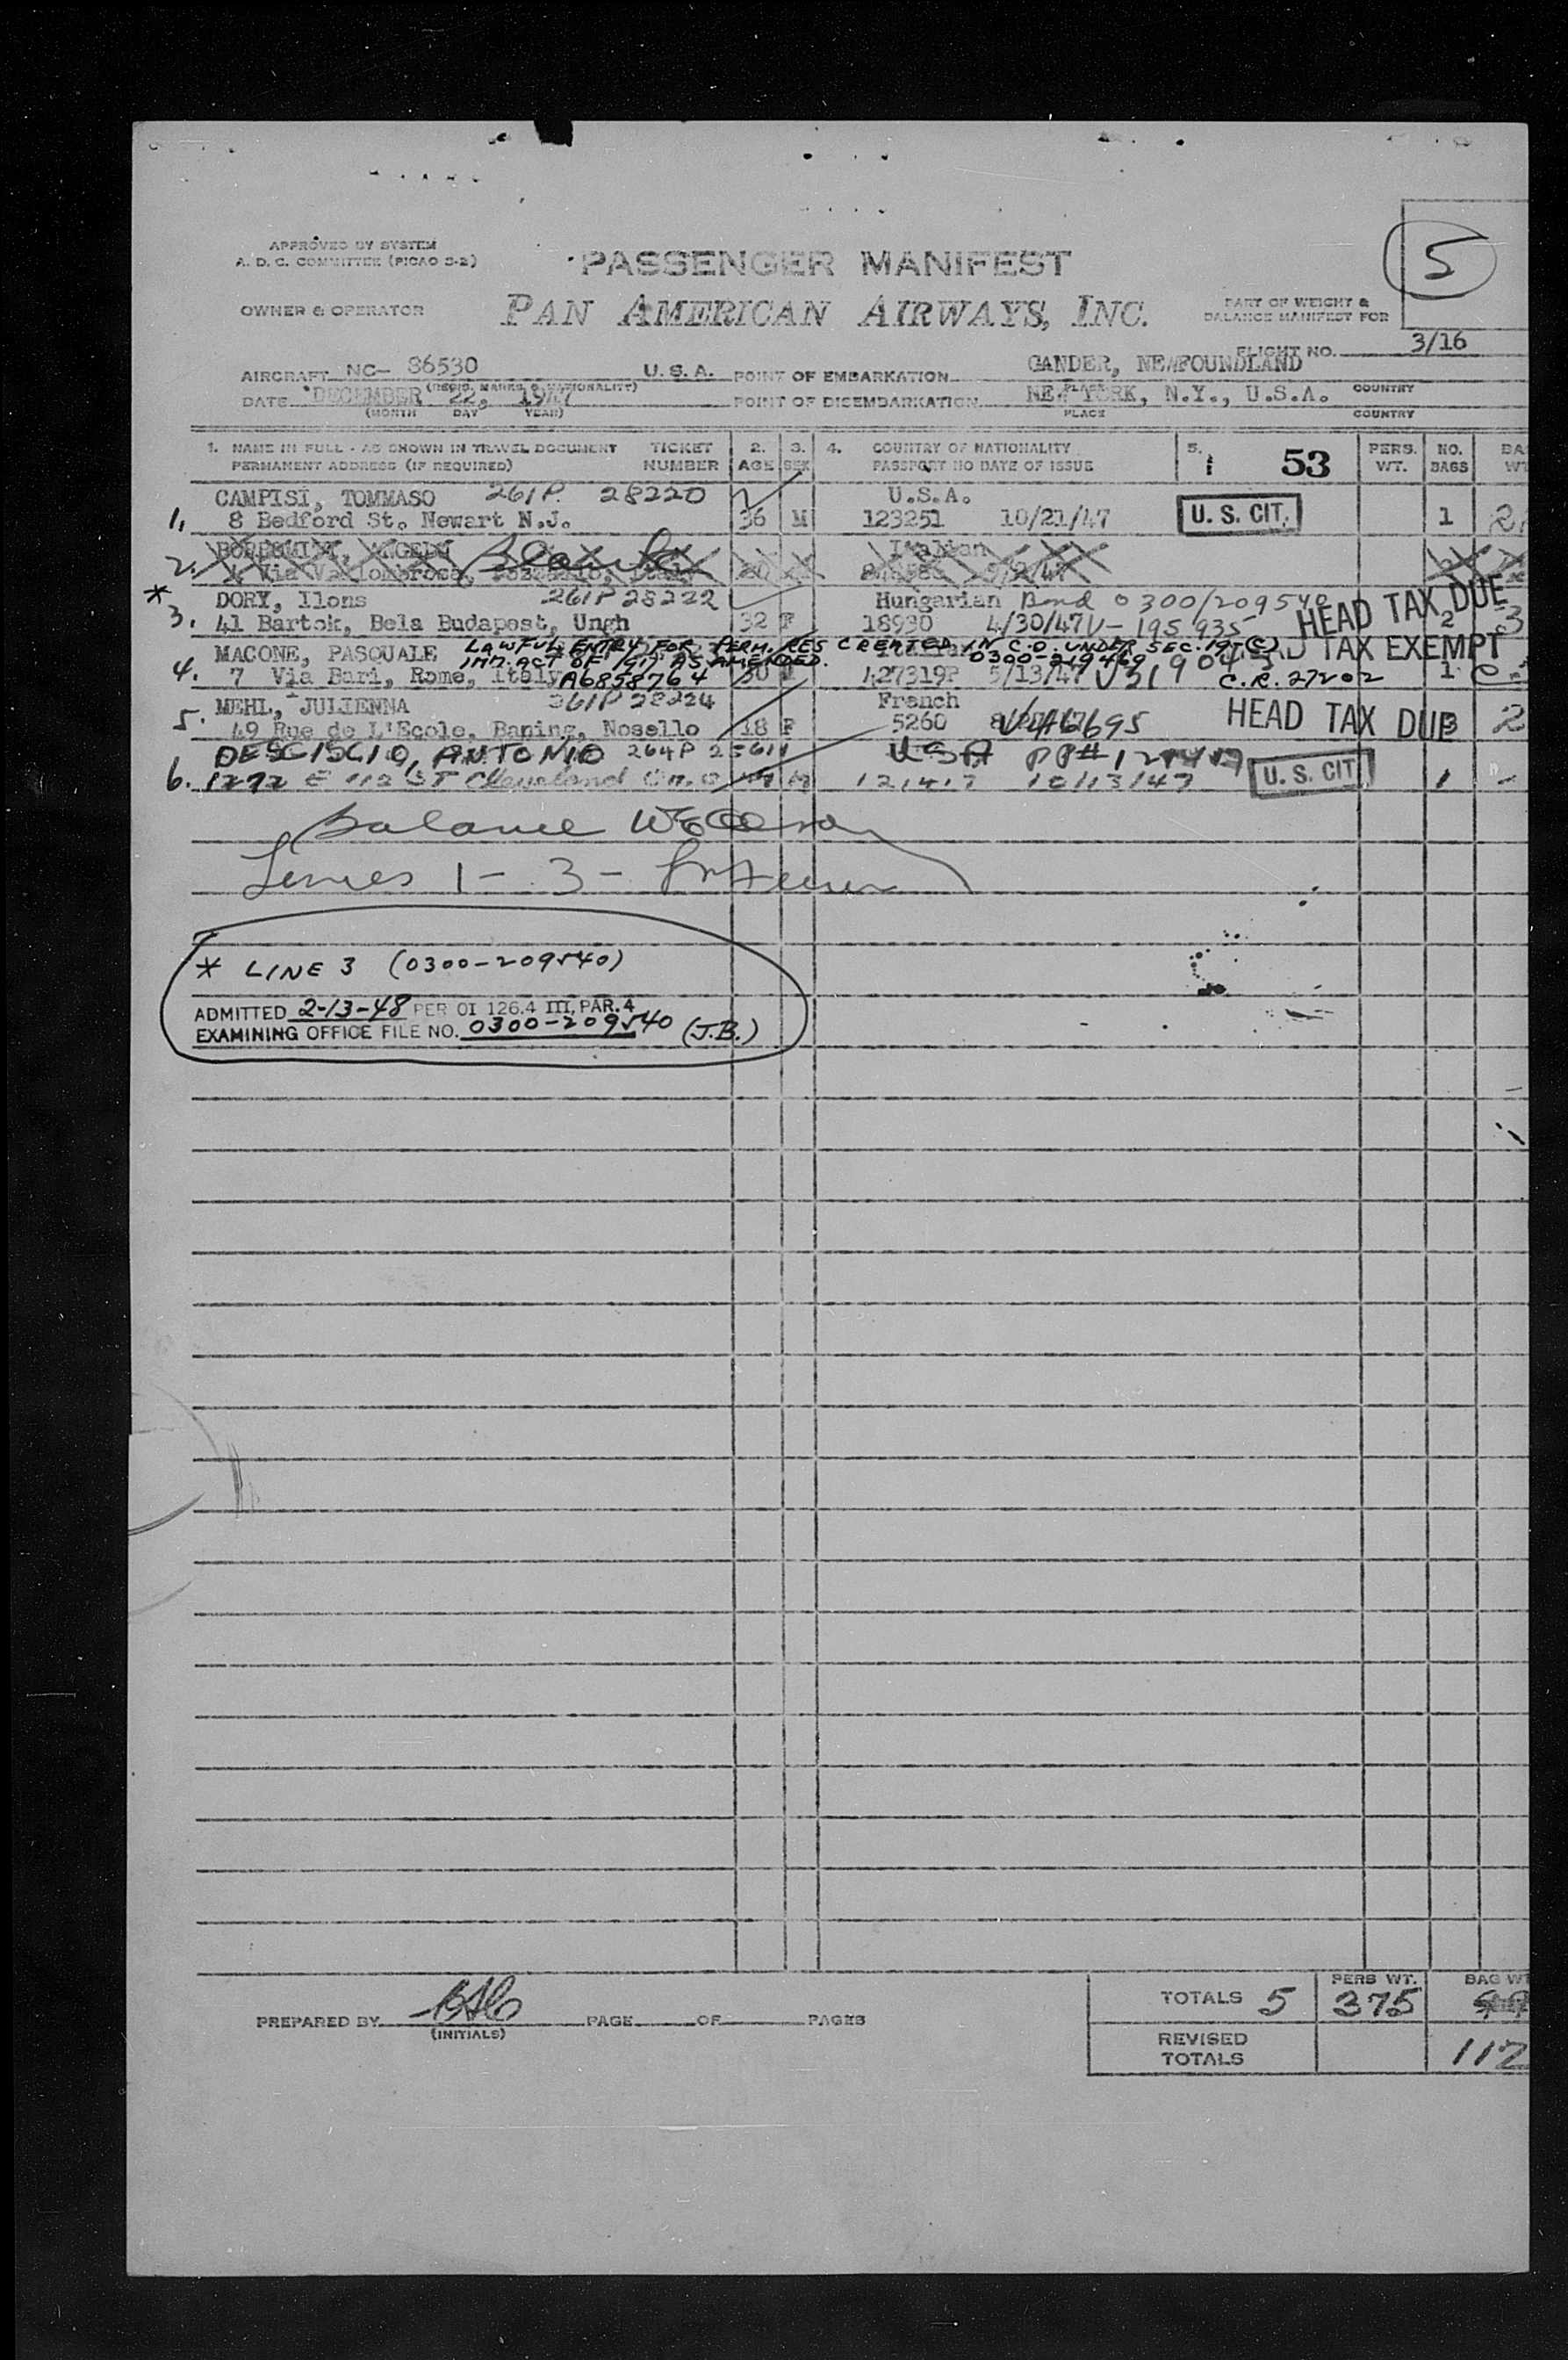 APPROVED BY SYSTEM
A. D. C. COMMITTEE (PICAO S-2)
PASSENGER MANIFEST
5
OWNER & OPERATOR
PAN AMERICAN AIRWAYS, INC.
PART OF WEIGHT &
BALANCE MANIFEST FOR
FLIGHT NO. 3/16
AIRCRAFT NC- 86530 U.S.A. POINT OF EMBARKATION GANDER, NEWFOUNDLAND
(REGIS. MARKS & NATIONALITY) PLACE COUNTRY
DATE DECEMBER 22, 1947 POINT OF DISEMBARKATION NEW YORK, N.Y., U.S.A.
(MONTH DAY YEAR) PLACE COUNTRY
1. NAME IN FULL - AS SHOWN IN TRAVEL DOCUMENT TICKET 2. 3. 4. COUNTRY OF NATIONALITY 5. 53 PERS. NO.
PERMANENT ADDRESS (IF REQUIRED) NUMBER AGE SEX PASSPORT NO DATE OF ISSUE WT. BAGS
CAMPISI, TOMMASO 261P 28220 U.S.A.
1. 8 Bedford St. Newart N.J. 36 M 123251 10/21/47 U. S. CIT. 1
Italian
2. Via
* DORY, Ilons 261P 28222 Hungarian Bond 0300/209540 HEAD TAX DUE
3. 41 Bartok, Bela Budapest, Ungh 32 F 18930 4/30/47 V-195935 2
MACONE, PASQUALE LAWFUL ENTRY FOR PERM. RES CREATED IN C.O. UNDER SEC. 19 (C) HEAD TAX EXEMPT
IMM. ACT OF 1917 AS AMENDED. 0300-219469
4. 7 Via Bari, Rome, Italy A6858764 30 427319P 5/13/47 C.R. 27202 1
MEHL, JULIENNA 261P 28224 French
5. 49 Rue de L'Ecole, Baning, Nosello 18 F 5260 HEAD TAX DUE
DESCISCIO, ANTONIO 264P USA PP#
6. 1272 E 112 ST Cleveland M 121417 10/13/47 U. S. CIT. 1
Balance
Lines 1 - 3 -
* LINE 3 (0300-209540)
ADMITTED 2-13-48 PER OI 126.4 III, PAR. 4
EXAMINING OFFICE FILE NO. 0300-209540 (J.B.)
PERS WT.
TOTALS 5 375
PREPARED BY PAGE OF PAGES
(INITIALS)
REVISED
TOTALS 112